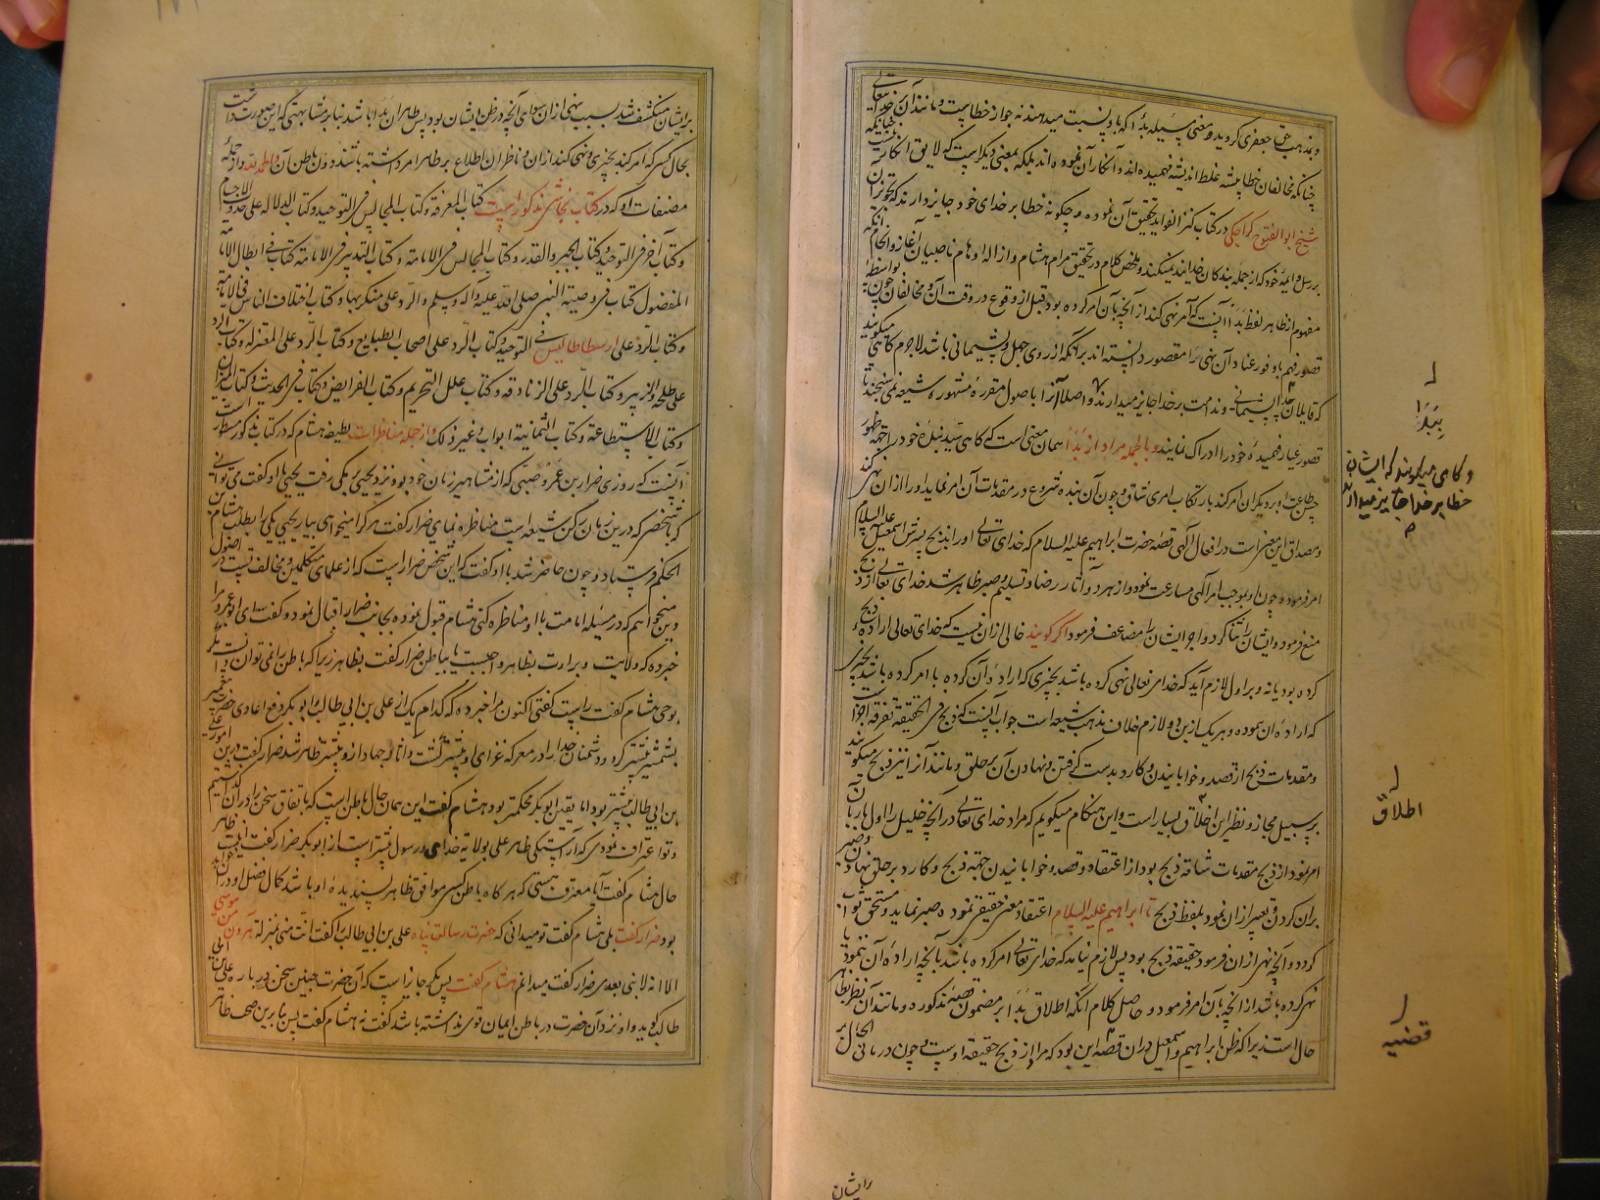 و بمذهب حق جعفری گردید و معنی مسئله بدا که باو نسبت میدهند نه جواز خطاست و مانند آن بر خدای تعالی
چنانکه مخالفان خطا پیشه غلط اندیشه فهمیده اند و انکار آن نموده اند بلکه بمعنی دیگر است که لایق انکار نیست چنانکه
شیخ ابو الفتوح کراجکی در کتاب کنز الفواید تحقیق آن نموده و چگونه خطا بر خدای خود جایز دارند که تجویز آن
بر رسل و ائمه خود که از جمله بندگان خدایند نمیکنند و ملخص کلام در تحقیق مرام هشام و ازاله اوهام ناصبیان آغاز و انجام آنکه
مفهوم از ظاهر لفظ بدا آنست که آمر نهی کند از آنچه بآن امر کرده بود قبل از وقوع در وقت آن و مخالفان چون بواسطه
قصور فهم یا وفور عناد آن نهی را مقصور دانسته اند بر آنکه از روی جهل و پشیمانی باشد لاجرم گاهی میگویند
که قایلان بدا پشیمانی و ندامت بر خدا جایز میدارند و اصلا آنرا با صول مقرره مشهوره شیعه نمی سنجند تا
قصور عیار فهمیده خود را ادراک نمایند و بالجمله مراد از بدا همان معنی است که گاهی سید بنده خود را بجهة ظهور
اطاعت او بر دیگران امر کند بارتکاب امری شاق و چون آن بنده شروع در مقدمات آن امر نماید او را از آن نهی کند
و مصداق این معنی است در افعال الهی قصه حضرت ابراهیم علیه السلام که خدای تعالی او را بذبح پسرش اسمعیل علیه السلام
امر فرموده و چون او بموجب امر الهی مسارعت نمود و از هر دو آثار رضا و تسلیم و صبر ظاهر شد خدای تعالی از ذبح
منع فرموده و ایشان را ثنا کرد و اجر ایشان را مضاعف فرمود اگر گویند خالی از ان نیست که خدای تعالی اراده ذبح
کرده بود یا نه و بر اول لازم آید که خدای تعالی نهی کرده باشد بچیزی که اراده آن کرده یا امر کرده باشد بچیزی
که اراده آن نموده و هر یک ازین دو لازم خلاف مذهب شیعه است جواب آنست که ذبح فی الحقیقه تفرقه اجزا است
و مقدمات ذبح از قصد و خوابانیدن و کارد بدست گرفتن و نهادن آن بر حلق و مانند آنرا نیز ذبح میگویند
بر سبیل مجاز و نظیر این اطلاق بسیار است و این هنگام میگویم که مراد خدای تعالی در آنچه خلیل را اول بار بآن
امر نمود از ذبح مقدمات شاقه ذبح بود از اعتقاد و قصد و خوابانیدن جهة ذبح و کارد بر حلق نهادن و صبر
بران کردن و تعبیر ازان نمود بلفظ ذبح تا ابراهیم علیه السلام اعتقاد معنی حقیقی نموده صبر نماید و مستحق ثواب
گردد و آنچه نهی ازان فرمود حقیقه ذبح بود پس لازم نیامد که خدای تعالی امر کرده باشد بآنچه اراده آن ننمود یا
نهی کرده باشد از آنچه بآن امر فرمود و حاصل کلام آنکه اطلاق بدا بر مضمون قصه مذکوره و مانند آن نظر بظاهر
حال است زیرا که ظن ابراهیم و اسمعیل در ان قصه این بود که مراد از ذبح حقیقه اوست و چون در ثانی الحال بر
بِبَدَا
و گاهی میگویند که ایشان
خطا بر خدا جایز میدارند
اطلاق
قضیه
برایشان
برایشان منکشف شد بسبب نهی ازان سوای آنچه در ظن ایشان بود پس ظاهر آن بدا باشد بنابر مشابهتی که این صورت داشت
بحال کسی که امر کند بچیزی و نهی کند ازان و ناظران اطلاع بر ظاهر امر داشته باشند دون باطن آن والحمد لله و از جمله
مصنفات او که در کتاب نجاشی مذکور است کتاب المعرفة و کتاب المجالس فی التوحید و کتاب الدلالة علی حدوث الاجسام
و کتاب آخر فی التوحید و کتاب الجبر و القدر و کتاب المجالس فی الامامة و کتاب التدبیر فی الامامة کتاب فی ابطال الامامة
المفضول کتاب فی وصیة النبی صلی الله علیه وآله وسلم و الرد علی منکریها و کتاب اختلاف الناس فی الامامة
و کتاب الرد علی ارسطاطالیس فی التوحید و کتاب الرد علی اصحاب الطبایع و کتاب الرد علی المعتزله و کتاب الرد
علی طلحه و الزبیر و کتاب الرد علی الزنادقه و کتاب علل التحریم و کتاب الفرایض و کتاب فی الحدیث و کتاب المیزان
و کتاب الاستطاعة و کتاب الثمانیة ابواب الی غیر ذلک و از جمله مناظرات لطیفه هشام که در کتاب مذکور مسطور است
آنست که روزی ضرار بن عمرو ضبی که از مشاهیر زمان خود بود نزد یحیی برمکی رفت یحیی با او گفت می توانی
که با شخصی که درین زمان رکن شیعه است مناظره نمای ضرار گفت هر کرا میخواهی بیار یحیی یکی را بطلب هشام بن
الحکم فرستاد و چون حاضر شد با او گفت که این شخص ضرار است که از علمای متکلمین و مخالف تست در اصول
دین میخواهم که در مسئله امامت با او مناظره کنی هشام قبول نموده بجانب ضرار اقبال نمود و گفت ای ابو عمرو مرا
خبر ده که ولایت و برایت بظاهر واجبست یا بباطن ضرار گفت بظاهر زیرا که باطن را نمی توان دانست مگر
بوحی هشام گفت راست گفتی اکنون مرا خبر ده که کدام یک از علی بن ابی طالب و ابو بکر دفع اعادی حضرت پیغمبر
بشمشیر بیشتر کرد و دشمنان خدا را در معرکه غزای او بیشتر کشت و آثار جهاد ازو بیشتر ظاهر شد ضرار گفت درین امور علی
بن ابی طالب بیشتر بود اما یقین ابو بکر محکمتر بود هشام گفت این همان حال باطن است که باتفاق سخن را در آن گذاشتیم
و تو اعتراف نمودی که آراستگی ظاهر علی بولایه خدای و رسول بیشتر است از ابو بکر ضرار گفت اینست ظاهر
حال هشام گفت آیا معترف هستی که هر گاه باطن کسی موافق ظاهر پسندیده او باشد کمال فضل او در آن خواهد
بود ضرار گفت بلی هشام گفت تو میدانی که حضرت رسالت پناه علی بن ابی طالب را گفت انت منی بمنزلة هرون من موسی
الا انه لا نبی بعدی ضرار گفت میدانم هشام گفت پس جایز است که آن حضرت چنین سخن در باره علی بن ابی
طالب گوید و او نزد آن حضرت در باطن ایمان قوی نداشته باشد گفت نه هشام گفت پس بنابرین صحت ظاهر